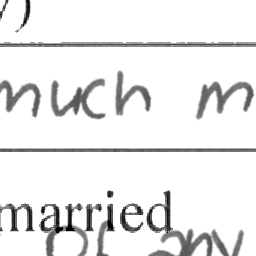 much m
married
of any